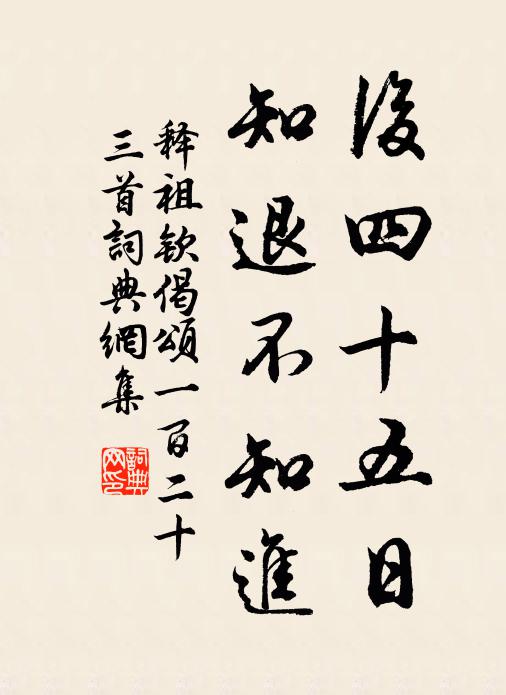 後四十五日
知退不知進
释祖钦偈頌一百二十
三首詞典網集
詞典
网印